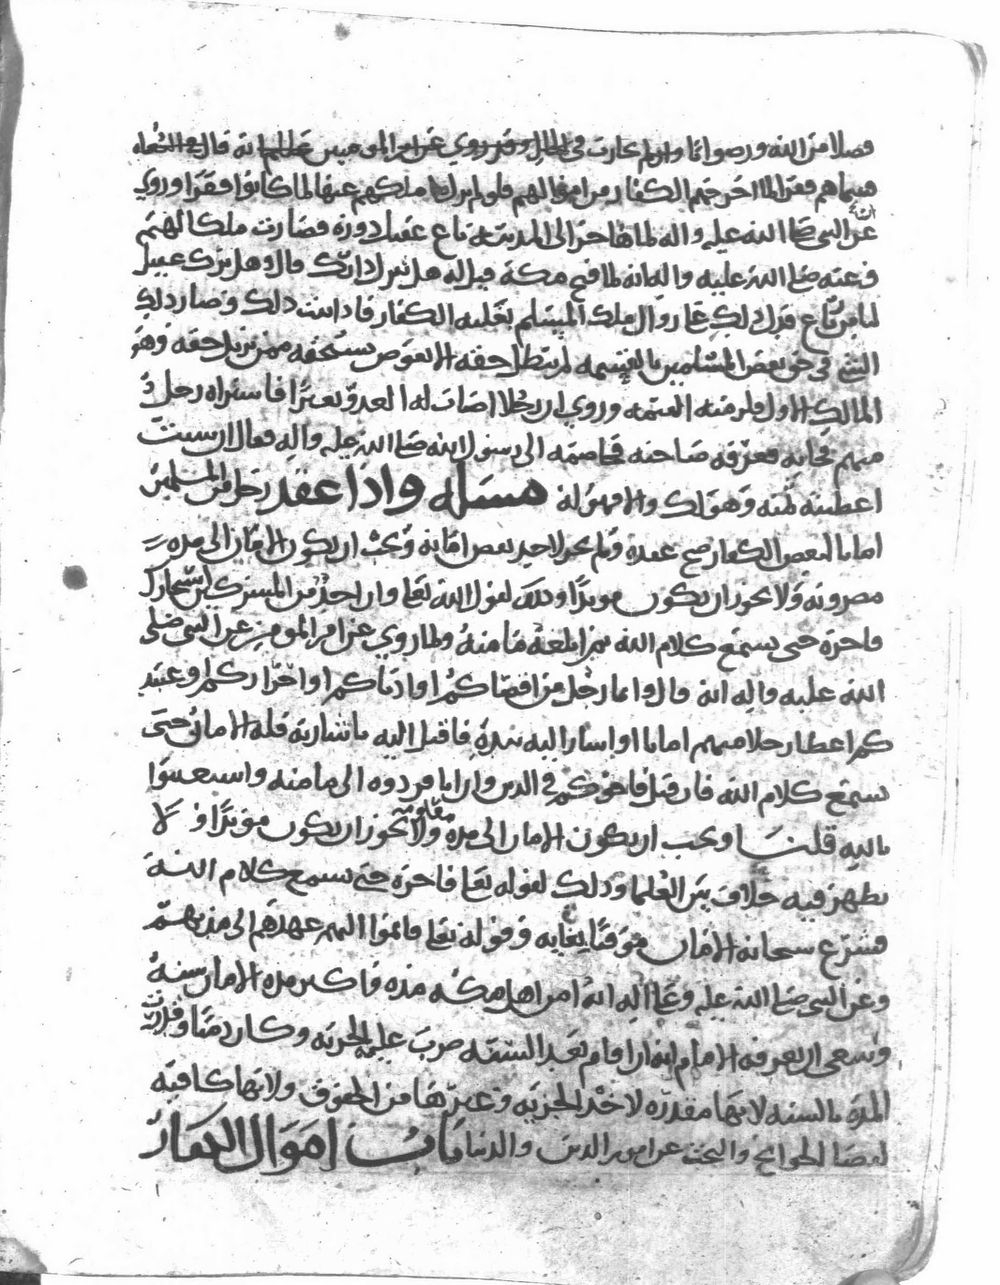 فضلا من الله ورضوانا وقد روي عن امير المومنين عليلم انه قال في
فسماهم فقرا لما اخرجهم الكفار من اموالهم فلو لم يزل ملكهم عنها لما كانوا فقرا وروي
عن النبي صلى الله عليه واله انه لما هاجر الى المدينة باع عقيل دوره فصارت ملكا لهم
وعنه صلى الله عليه واله انه لما فتح مكة قيل له هل تنزل دارك قال وهل ترك عقيل
لنا من رباع فدل ذلك على زوال ملك المسلم بغلبه الكفار فاذا ثبت ذلك وصار ذلك
الشي في حق بعض المسلمين بالقسمه لم يبطل حقه الا بعوض يستحقه ممن يزيل حقه وهو
المالك الاول قبل القسمه وروي ان رجلا اصاب له العدو بعيرا فاشتراه رجل
منهم فجا به فعرفه صاحبه فخاصمه الى رسول الله صلى الله عليه واله فقال ان شيت
اعطيته ثمنه وهو لك والا فهو له مسئله واذا عقد رجل من المسلمين
امانا لبعض الكفار صح عقده ولم يجز لاحد نقض امانه ويجب ان يكون الامان الى مده
مضروبه ولا يجوز ان يكون موبدا وذلك لقول الله تعالى وان احد من المشركين استجارك
فاجره حتى يسمع كلام الله ثم ابلغه مامنه ولما روي عن امير المومنين عن النبي صلى
الله عليه واله انه قال وايما رجل من اقصاكم او ادناكم او احراركم او عبيد
كم اعطا رجلا منهم امانا او اشار اليه بيده فاقبل اليه باشارته فله الامان حتى
يسمع كلام الله فان قبل فاخوكم في الدين وان ابا فردوه الى مامنه واستعينوا
بالله قلنا ويجب ان يكون الامان الى مده معلومه ولا يجوز ان يكون موبدا ولا
يظهر فيه خلاف بين العلما وذلك لقوله تعالى فاجره حتى يسمع كلام الله
فشرع سبحانه الامان موقتا بغايه وقوله تعالى فاتموا اليهم عهدهم الى مدتهم
وعن النبي صلى الله عليه وعلى اله انه امن اهل مكه مده فاكثر مده الامان سنه
وينبغي ان يعرفه الامام انه ان اقام بعد السنه ضرب عليه الجزيه وكان ذميا وقدرت
المده بالسنه لانها مقدره لاخذ الجزيه وغيرها من الحقوق ولانها كافيه
لقضا الحوايج والبحث عن امور الدين والدنيا باب اموال الكفار